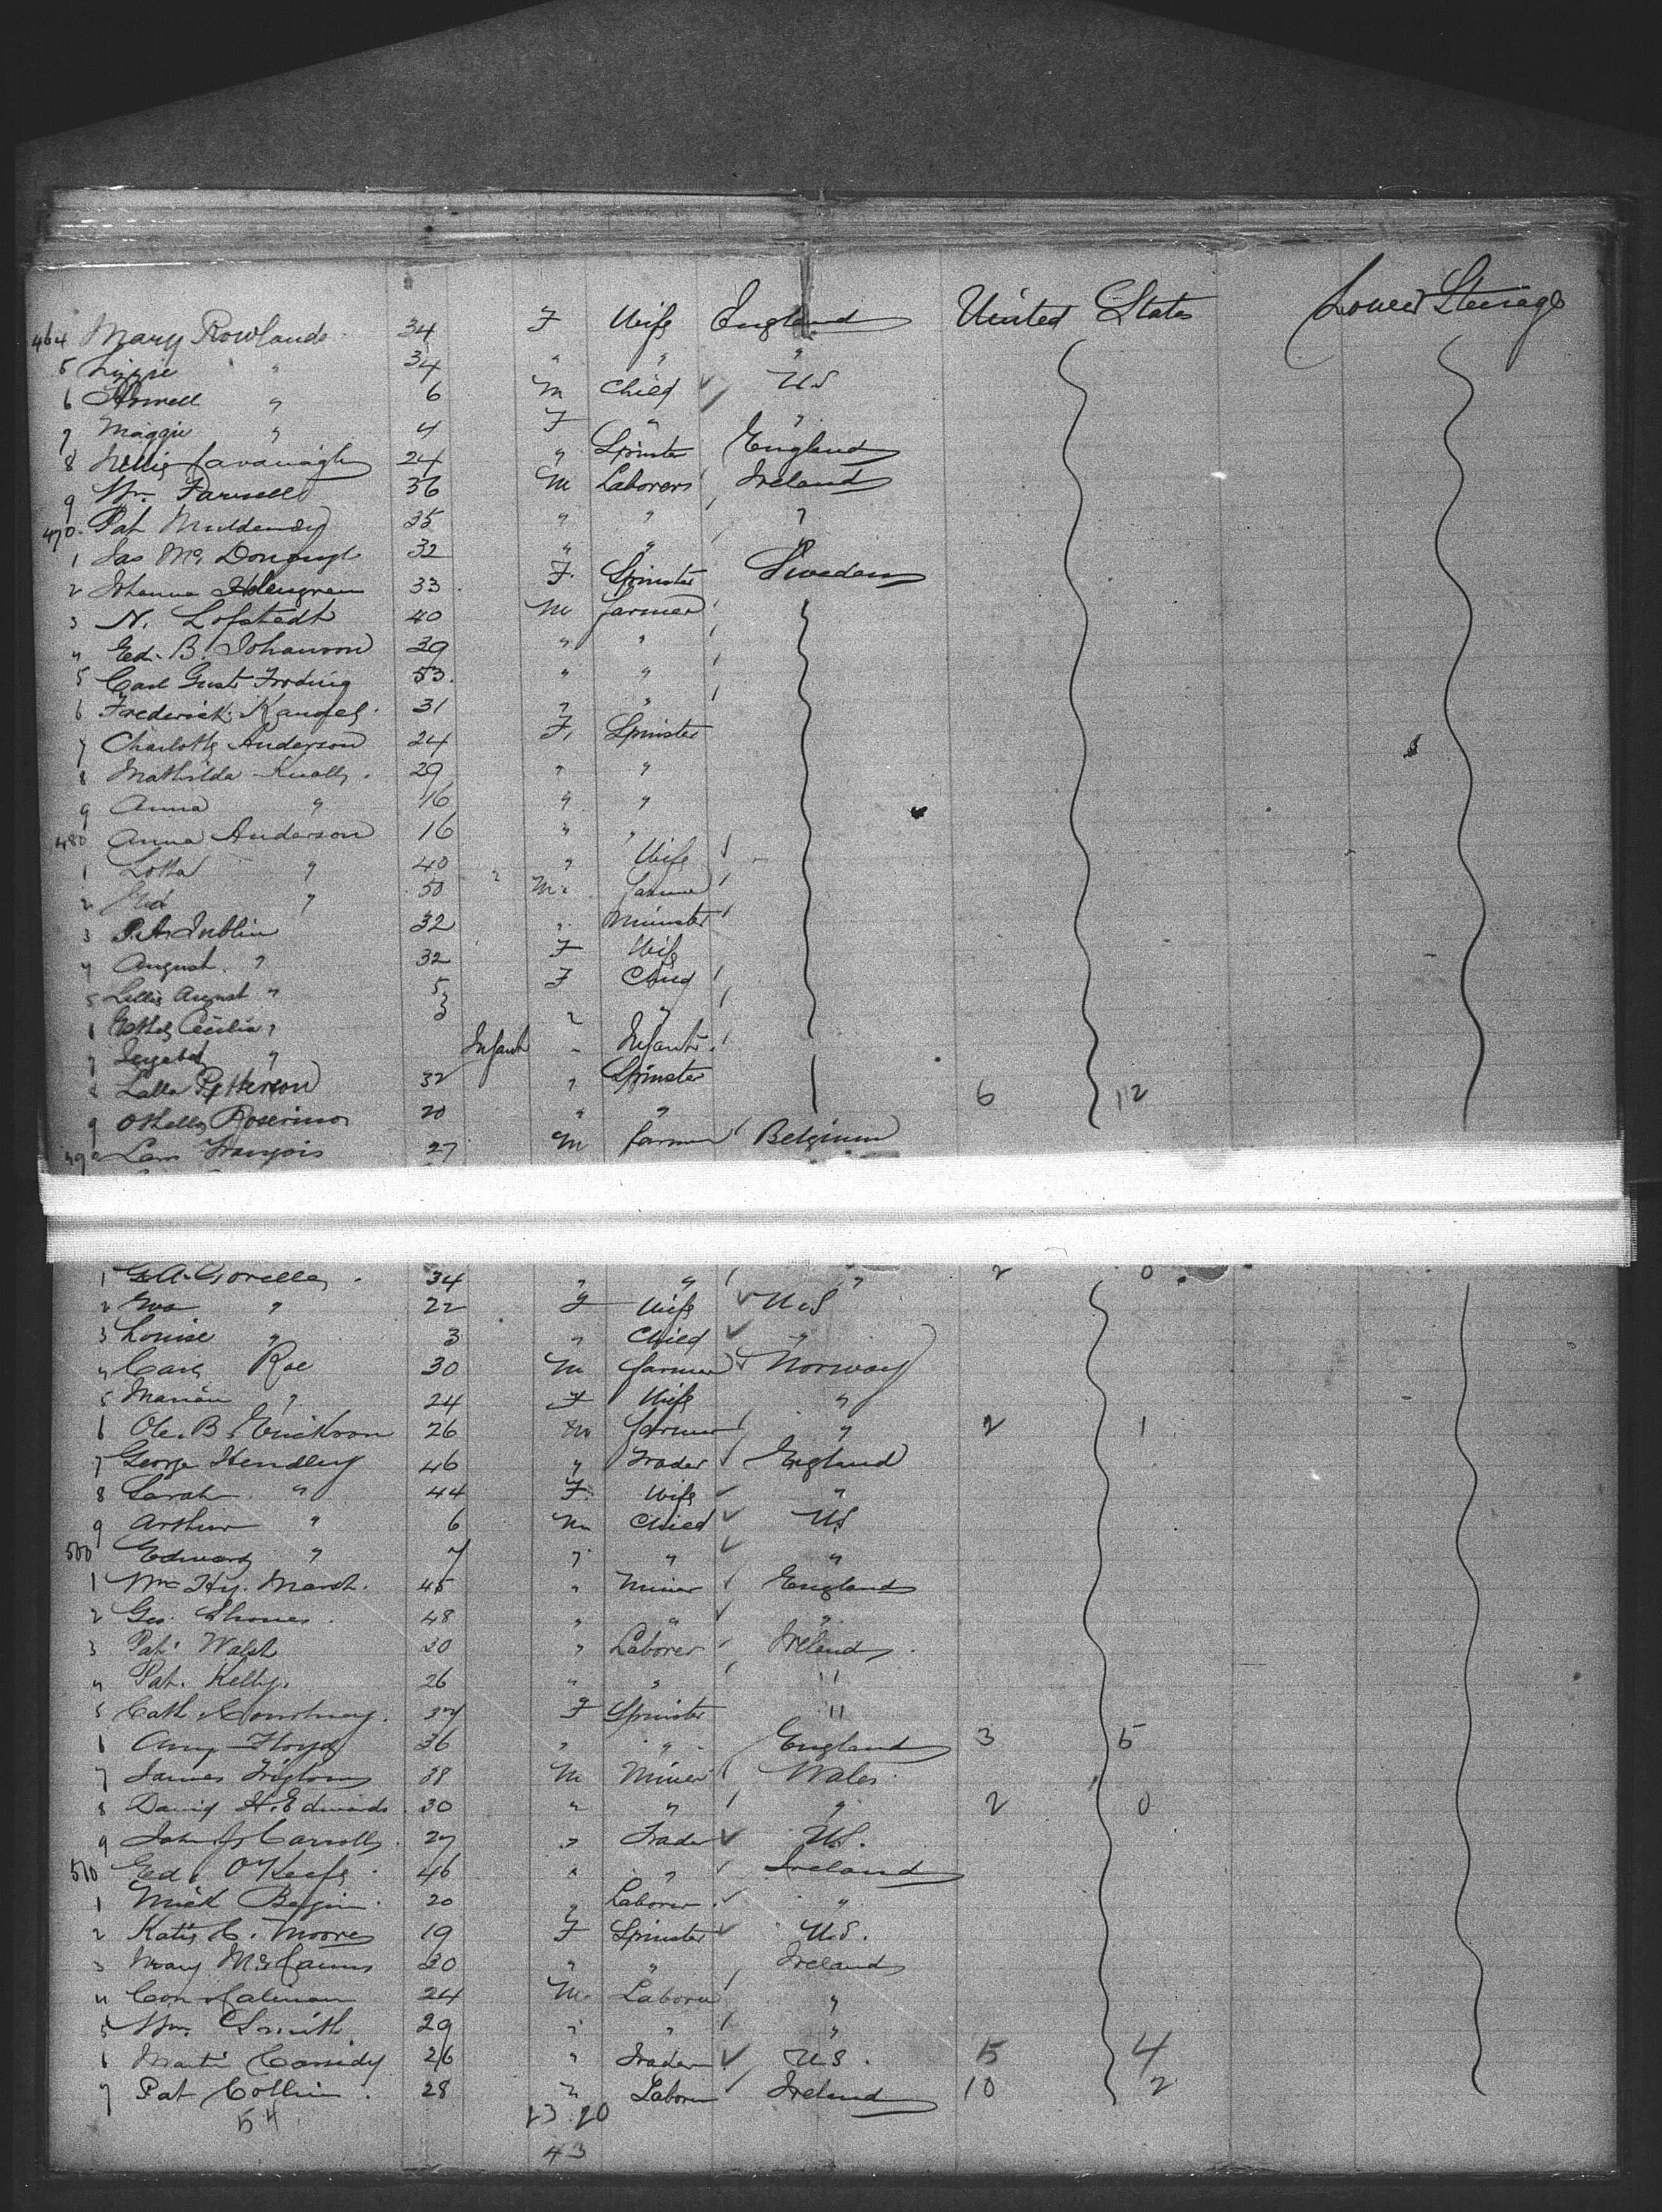 464 Mary Rowlands 34 F Wife England United States Lower Steerage
5 Lizzie " 34 " " "
6 Howell " 6 M Child US
7 Maggie " 4 F " "
8 Nellie Cavanagh 24 " Spinster England
9 Wm. Farrell 36 M Laborers Ireland
470 Pat 35 " " "
1 Jas McDonough 32 " " "
2 Johanna 33 F. Spinster Sweden
3 N. Lofstedt 40 M farmer
4 Ed. B. Johanson 39 " "
5 Carl Gust Froding 53 " "
6 Frederick 31 " "
7 Charlotte Anderson 24 F. Spinster
8 Mathilda 29 " "
9 Anna " 16 " "
480 Anna Anderson 16 " "
1 Lotta " 40 " Wife
2 " 50 M. farmer
3 32 " Minister
4 August " 32 F Wife
5 Lillie August " 5 F Child
6 Ethel Cecilia " 3 " "
7 " Infant " Infant
8 Petterson 32 " Spinster 6 12
9 20 " "
490 François 27 M farmer Belgium
1 34 " " " 2 0
2 Eva " 22 F Wife U.S
3 Louise " 3 " Child "
4 Carl Roe 30 M farmer Norway
5 Marian " 24 F Wife "
6 Ole. B. Erickson 26 M farmer " 2 1
7 George Hendley 46 " Trader England
8 Sarah " 44 F. Wife "
9 Arthur " 6 M Child US
500 Edward " 7 " " "
1 Wm Hy. Marsh. 45 " Miner England
2 Geo. 48 " " "
3 Pat Walsh 30 " Laborer Ireland
4 Pat. Kelly. 26 " " "
5 Cath. Courtney. F Spinster "
6 Amy Floyd 36 " " England 3 5
7 James 38 M Miner Wales
8 David H. Edwards 30 " " " 2 0
9 John J. Carroll 27 " Trader US.
510 Ed. O'Keefe 46 " " Ireland
1 Mick 20 " Laborer "
2 Katie C. Moore 19 F Spinster U.S.
3 Mary 30 " " Ireland
4 Con 24 M. Laborer "
5 Wm Smith 29 " " "
6 Martin Cassidy 26 " Trader US. 15 4
7 Pat Collins 28 " Laborer Ireland 10 2
54 23 20
43